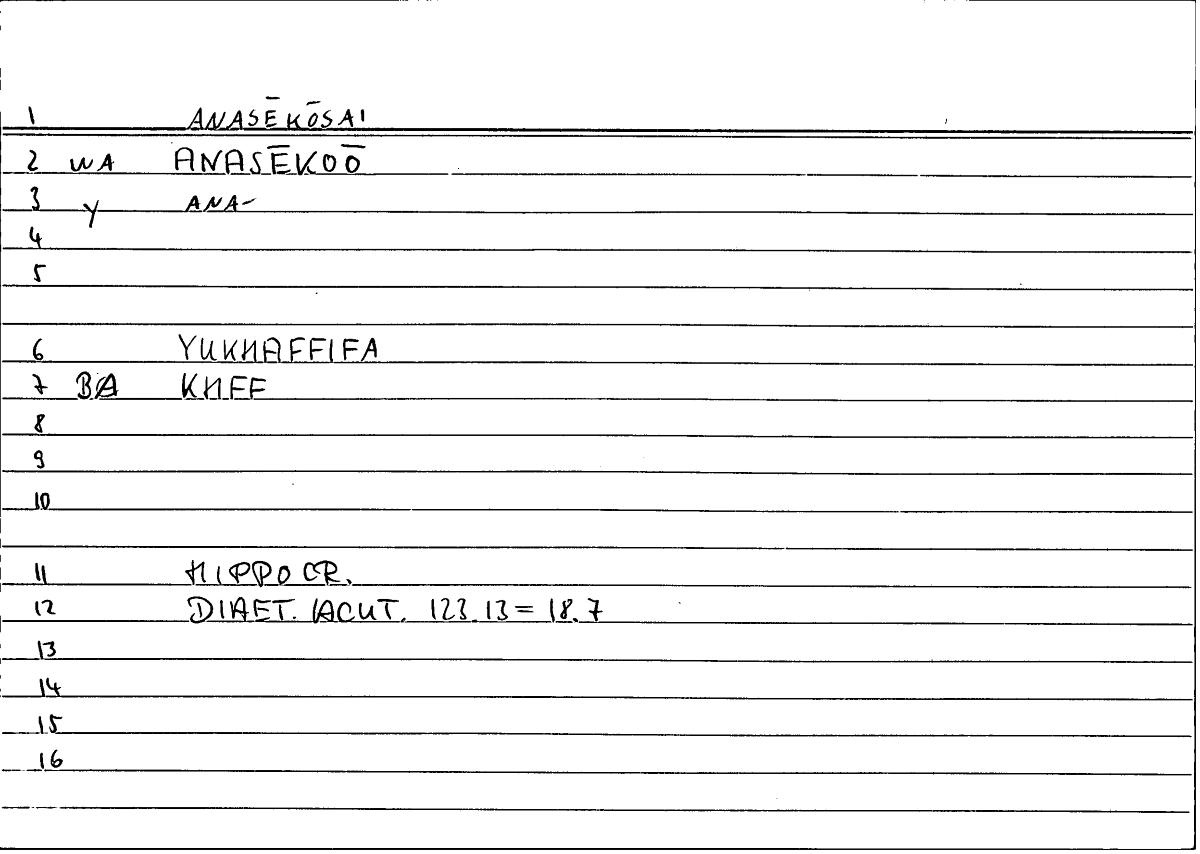 1 ANASĒKŌSAI
2 WA ANASĒKOŌ
3 Y ANA-
4
5
6 YUKHAFFIFA
7 BA KHFF
8
9
10
11 HIPPOCR.
12 DIAET. ACUT. 123.13 = 18.7
13
14
15
16